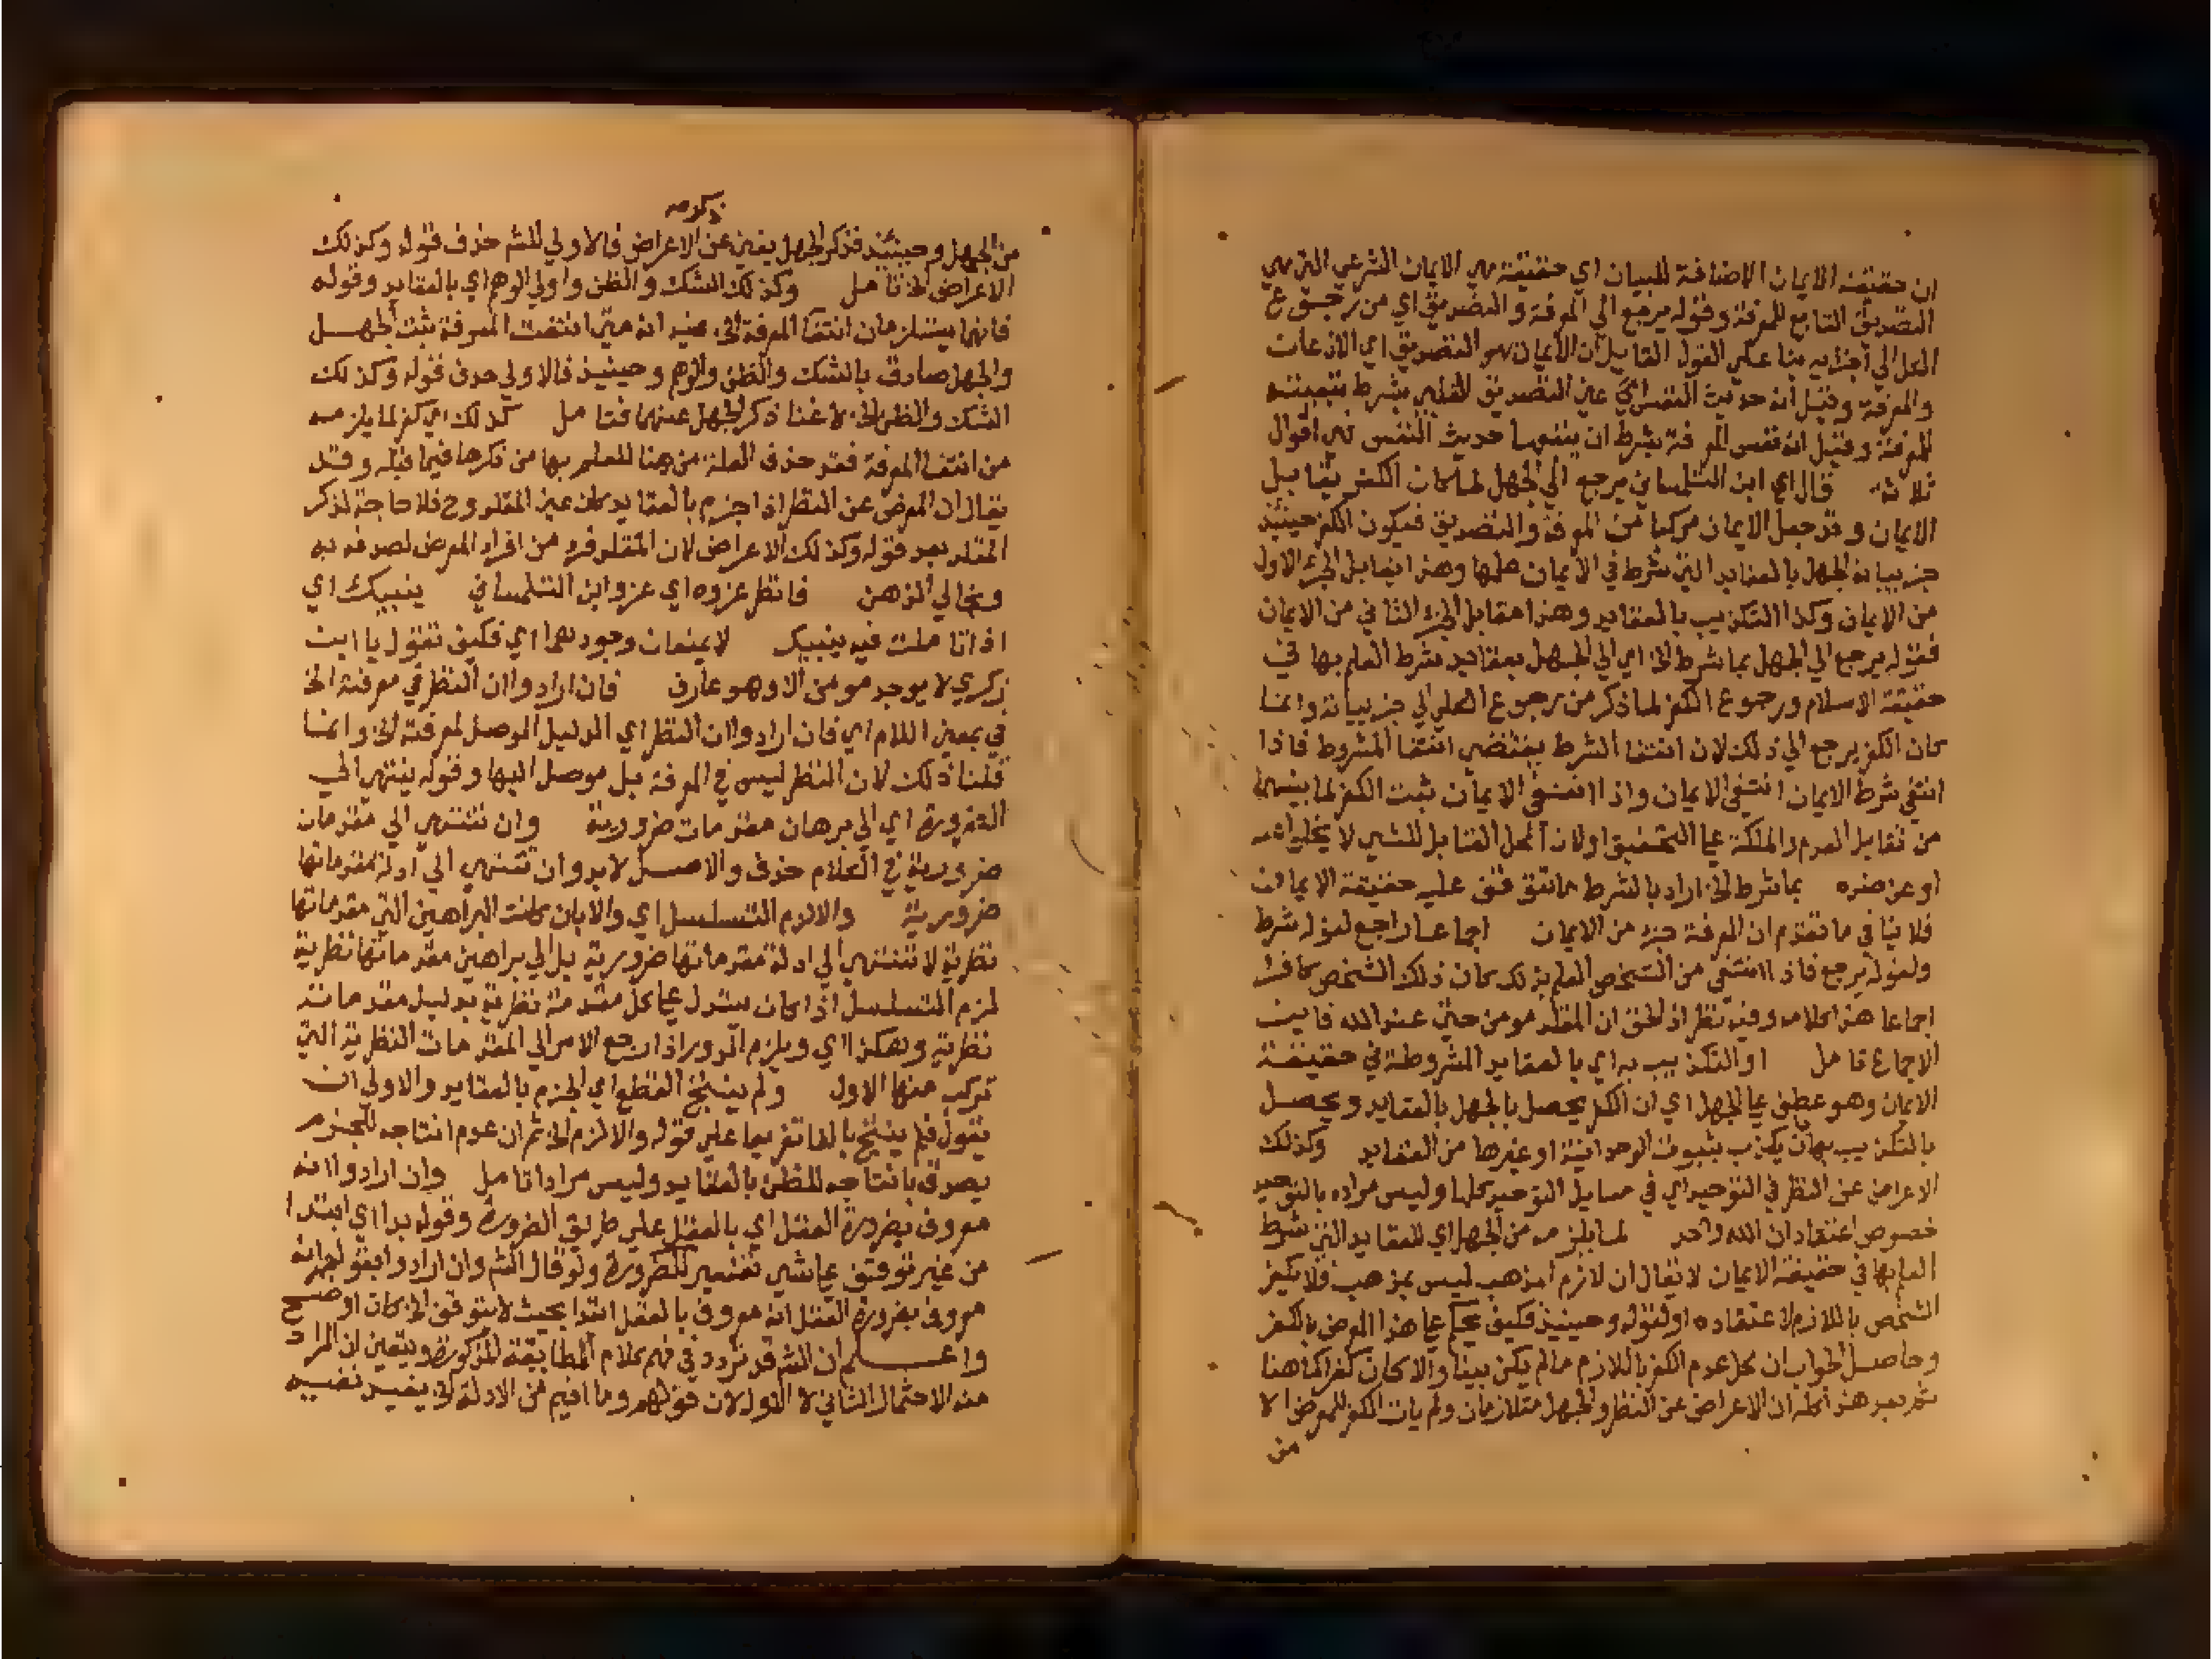 ان حقيقة الايمان الاضافة للبيان اي حقيقة هي الايمان الشرعي التي هي
التصديق التابع للمعرفة وقوله يرجع الي المعرفة والتصديق اي من رجوع
الكل الي اجزايه بنا علي القول القايل ان الايمان هو التصديق اي الاذعان
والمعرفة وقيل انه حديث النفس اي عين التصديق القلبي بشرط تبعيته
للمعرفة وقيل انه نفس المعرفة بشرط ان يتبعها حديث النفس فهي اقوال
ثلاثة قال اي ابن التلمساني يرجع الي الجهل لما كان الكفر يقابل
الايمان وقد جعل الايمان مركبا من المعرفة والتصديق فيكون الكفر حينئذ
جزيياته الجهل بالعقايد التي شرط في الايمان علمها وهذا يقابل الجزء الاول
من الايمان وكذا التكذيب بالعقايد وهذا مقابل الجزء الثاني من الايمان
فقوله يرجع الي الجهل بما شرط الخ اي الي الجهل بعقايد شرط العلم بها في
حقيقة الاسلام ورجوع الكفر لما ذكر من رجوع الكلي الي جزيياته وانما
كان الكفر يرجع الي ذلك لان انتفا الشرط يقتضي انتفا المشروط فاذا
انتفي شرط الايمان انتفي الايمان واذا انتفي الايمان ثبت الكفر لما بينهما
من تقابل العدم والملكة علي التحقيق اولان المحل القابل للشي لا يخلوا عنه
او عن ضده بما شرط الخ اراد بالشرط ما تتوقف عليه حقيقة الايمان
فلا ينافي ما تقدم ان المعرفة جزء من الايمان اجماعا راجع لقوله شرط
ولقوله يرجع فاذا انتفي من الشخص العلم بذلك كان ذلك الشخص كافرا
اجماعا هذا كلامه وفيه نظر اذ الحق ان المقلد مومن حتي عند الله فاين
الاجماع تامل او التكذيب به اي بالعقايد المشروطة في حقيقة
الايمان وهو عطف علي الجهل اي ان الكفر يحصل بالجهل بالعقايد ويحصل
بالتكذيب بها كان يكذب بثبوت الوحدانية او غيرها من العقايد وكذلك
الاعراض عن النظر في التوحيد اي في مسايل التوحيد كلها وليس مراده بالتوحيد
خصوص اعتقاد ان الله واحد لما يلزمه من الجهل اي للعقايد التي شرط
العلم بها في حقيقة الايمان لا يقال ان لازم المذهب ليس بمذهب فلا يكفر
الشخص باللازم لاعتقاده او لقوله وحينئذ فكيف يحكم علي هذا المعرض بالكفر
وحاصل الجواب ان محل عدم الكفر باللازم ما لم يكن بينا والا كان كفرا كما هنا
ثم بعد هذا كله ان الاعراض عن النظر والجهل متلازمان ولم يات الكفر للمعرض الا
من
ذكره
من الجهل وحينئذ فذكر الجهل يغني عن الاعراض فالاولي للشم حذف قوله وكذلك
الاعراض الخ تامل وكذلك الشك والظن واولي الوهم اي بالعقايد وقوله
فانهما يستلزمان انتفا المعرفة الخ فيه انه متي انتفت المعرفة ثبت الجهل
والجهل صادق بالشك والظن والوهم وحينئذ فالاولي حذف قوله وكذلك
الشك والظن الخ لاغنا ذكر الجهل عنهما فتامل كذلك اي كفر لما يلزمه
من انتفا المعرفة فقد حذف العلة من هنا للعلم بها من ذكرها فيما قبله وقد
يقال ان المعرض عن النظر اذا جزم بالعقايد كان عين المقلد وح فلا حاجة لذكر
المقلد بعد قوله وكذلك الاعراض لان المقلد فرد من افراد المعرض لصدقه به
وبخالي الذهن فانظر عزوه اي عزو ابن التلمساني ينبيك اي
اذا تاملت فيه ينبيك لا يمنعان وجودهما اي فكيف تقول يا ابن
زكري لا يوجد مومن الا وهو عارف فان ارادوا ان النظر في معرفته الخ
في بمعني اللام اي فان ارادوا ان النظر اي الدليل الموصل لمعرفته الخ وانما
قلنا ذلك لان النظر ليس في المعرفة بل موصل اليها وقوله ينتهي الي
الضرورة اي الي برهان مقدمات ضرورية وان تنتهي الي مقدمات
ضرورية في الكلام حذف والاصل لابد وان تنتهي الي ادلة مقدماتها
ضرورية والالزم التسلسل اي والا بان كانت البراهين التي مقدماتها
نظرية لا تنتهي الي ادلة مقدماتها ضرورية بل الي براهين مقدماتها نظرية
لزم التسلسل اذا كان يستدل علي كل مقدمة نظرية بدليل مقدماته
نظرية وهكذا اي ويلزم الدور اذا رجع الامر الي المقدمات النظرية التي
تركب منها الاول ولم ينتج القطع اي الجزم بالعقايد والاولي ان
يقول فلم ينتج بالفا تفريعا علي قوله والالزم الخ ثم ان عدم انتاجه للجزم
يصدق بانتاجه للظن بالعقايد وليس مرادا تامل وان ارادوا انه
معروف بضرورة العقل اي بالعقل علي طريق الضرورة وقوله بدا اي ابتدا
من غير توقف علي شي تفسير للضرورة ولو قال الشم وان ارادوا بقولهم انه
معروف بضرورة العقل انه معروف بالعقل ابتدا بحيث لا يتوقف الخ كان اوضح
واعلم ان الشم قد تردد في فهم كلام المطابقة المذكورة ويتعين ان المراد
منه الاحتمال الثاني لا الاول لان قولهم وما اقيم من الادلة الخ يفسر نفسه